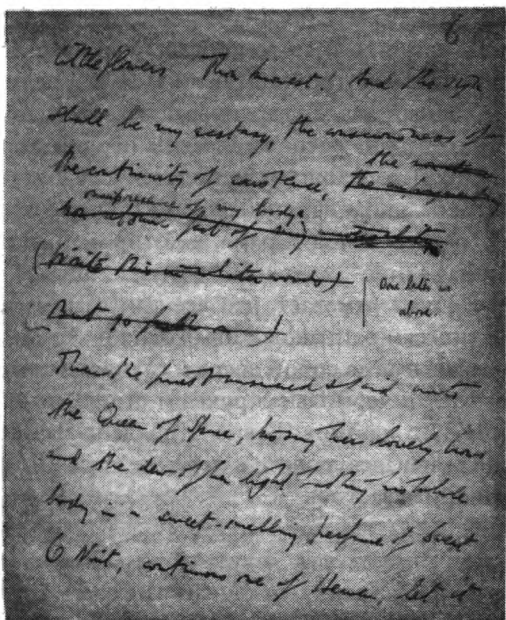 6
little flowers Thou knowest! And the sign
shall be my ecstasy, the consciousness of
the continuity of existence, the
omnipresence of my body.
(Write this in whiter words)
as
above.
But go forth on)
Then the priest answered & said unto
the Queen of Space, kissing her lovely brows
and the dew of her light bathing his whole
body in a sweet-smelling perfume of sweat
O Nuit, continuous one of Heaven, let it